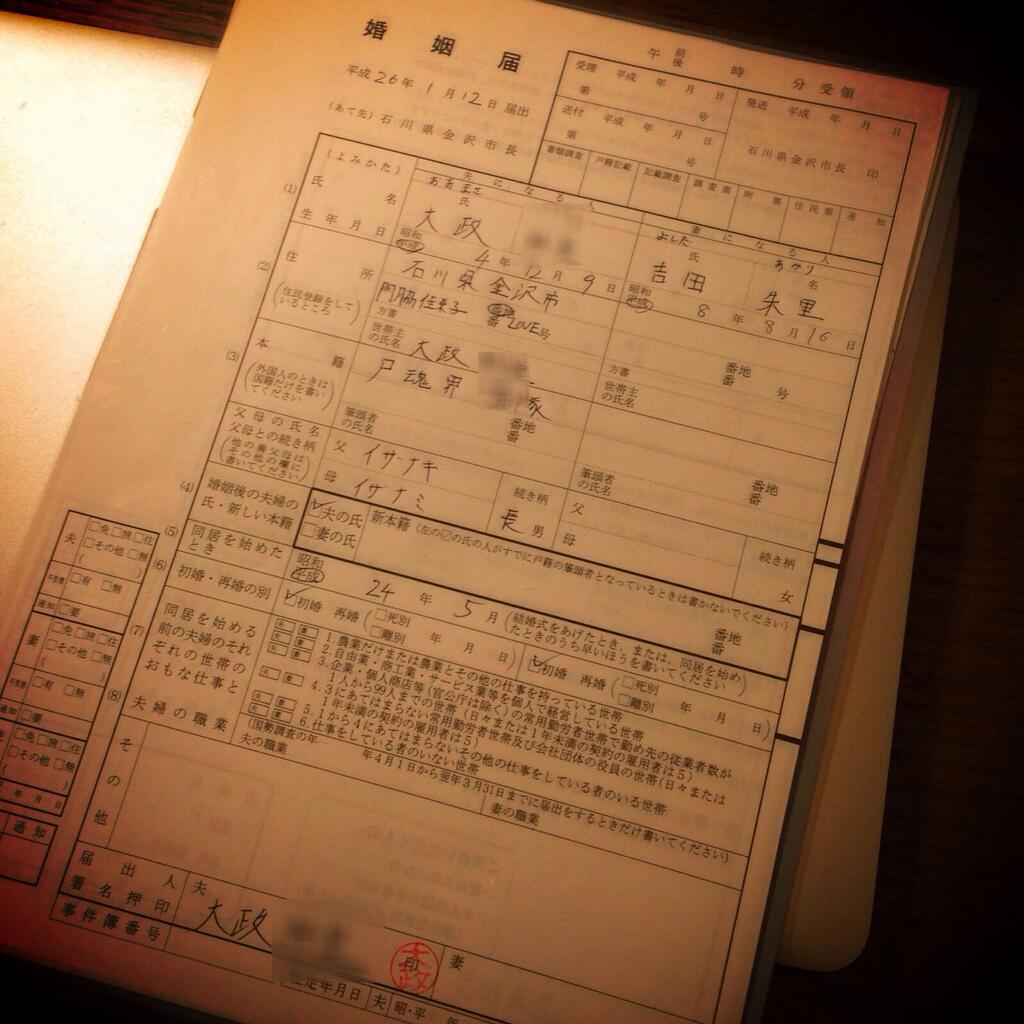 婚姻届
平成26年1月12日届出
(あて先)石川県金沢市長
午前後 時 分受領
受理 平成 年 月 日
第 号
発送 平成 年 月 日
送付 平成 年 月 日
第 号
石川県金沢市長 印
書類調査 戸籍記載 記載調査 調査票 附票 住民票 通知
(1)
(よみかた)
夫になる人
妻になる人
おおまさ
よしだ あかり
氏名
氏
氏 名
大政
吉田 朱里
生年月日
昭和 平成 4年12月9日
昭和 平成 8年8月16日
(2)
住所
(住民登録をしているところ)
石川県金沢市
門脇佳奈子 番地 番 LOVE号
番地 番 号
方書
方書
世帯主の氏名 大政
世帯主の氏名
(3)
本籍
(外国人のときは国籍だけを書いてください)
尸魂界 隊
番地 番
番地 番
筆頭者の氏名
筆頭者の氏名
父母の氏名
父母との続き柄
(他の養父母はその他の欄に書いてください)
父 イザナキ
母 イザナミ
続き柄
長男
父
母
続き柄
女
(4)
婚姻後の夫婦の氏・新しい本籍
夫の氏
妻の氏
新本籍(左の☑の氏の人がすでに戸籍の筆頭者となっているときは書かないでください)
番地 番
(5)
同居を始めたとき
昭和 平成 24年5月
(結婚式をあげたとき、または、同居を始めたときのうち早いほうを書いてください)
(6)
初婚・再婚の別
初婚 再婚(□死別 □離別 年 月 日)
初婚 再婚(□死別 □離別 年 月 日)
(7)
同居を始める前の夫婦のそれぞれの世帯のおもな仕事と
夫 妻 1.農業だけまたは農業とその他の仕事を持っている世帯
夫 妻 2.自由業・商工業・サービス業等を個人で経営している世帯
夫 妻 3.企業・個人商店等(官公庁は除く)の常用勤労者世帯で勤め先の従業者数が1人から99人までの世帯(日々または1年未満の契約の雇用者は5)
夫 妻 4.3にあてはまらない常用勤労者世帯及び会社団体の役員の世帯(日々または1年未満の契約の雇用者は5)
5.1から4にあてはまらないその他の仕事をしている者のいる世帯
6.仕事をしている者のいない世帯
(8)
夫婦の職業
(国勢調査の年… 年4月1日から翌年3月31日までに届出をするときだけ書いてください)
夫の職業
妻の職業
その他
届出人署名押印
夫 大政
印
大政
妻
事件簿番号
住定年月日
夫 昭・平 年
夫
□免□旅□住
□その他□無
( )
□有 □無
通知 □要
妻
□免□旅□住
□その他□無
( )
□有 □無
通知 □要
□免□旅□住
□その他□無
( )
年 月 日
通知